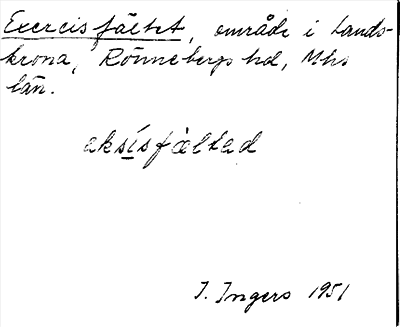 Exercisfältet, område i Lands-
krona, Rönnebergs hd, Mhs
län.
eksísfæltəd
I. Ingers 1951